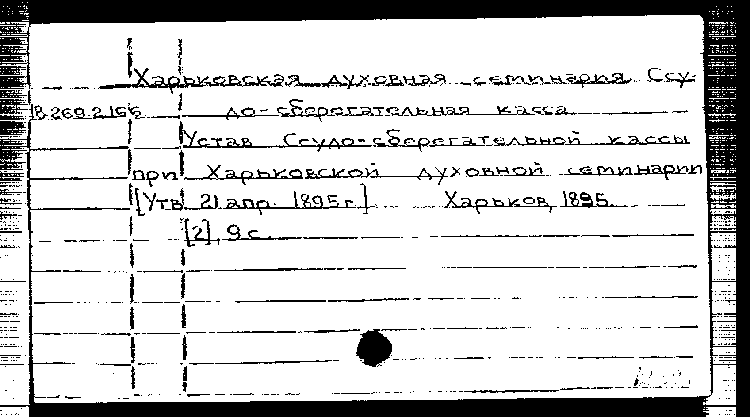 Харьковская духовная семинария Ссу-
18.269.2.166 до-сберегательная касса
Устав Ссудо-сберегательной кассы
при Харьковской духовной семинарии
[Утв. 21 апр. 1895 г.] Харьков, 1895.
[2], 9 с.